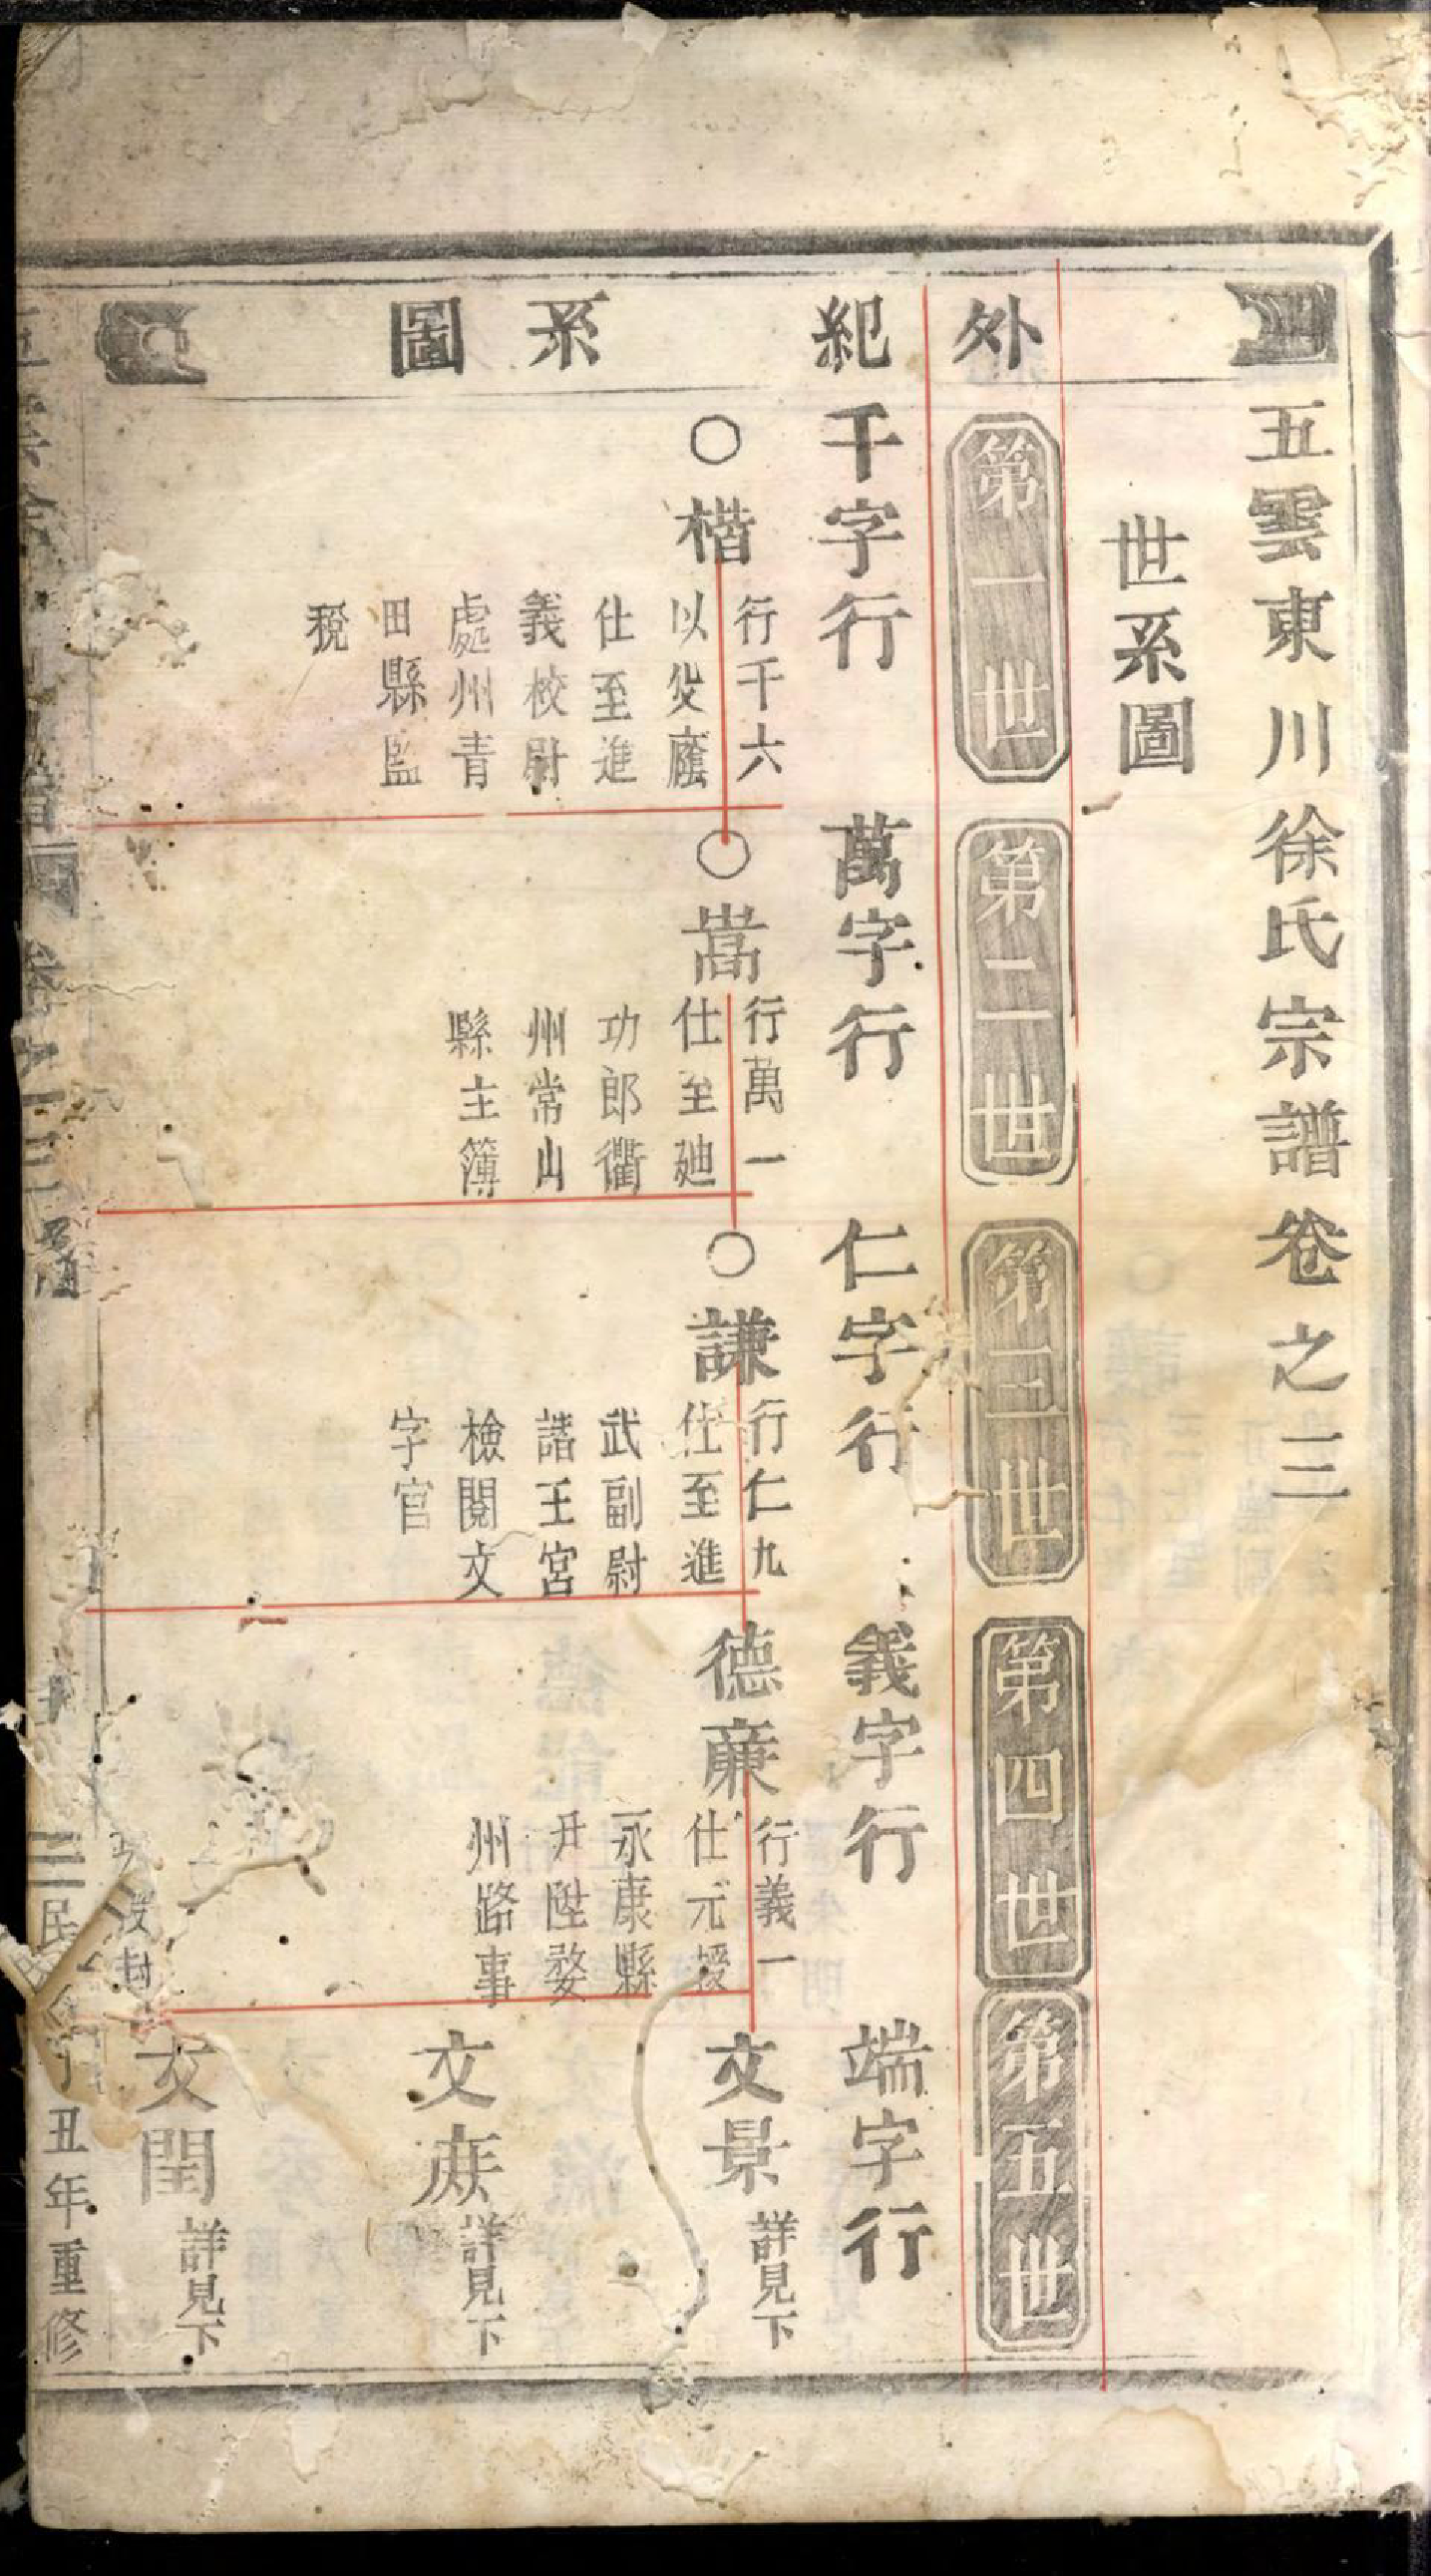 五雲東川徐氏宗譜卷之三
世系圖
外紀系圖
第一世
第二世
第三世
第四世
第五世
千字行
萬字行
仁字行
義字行
端字行
○楷
行千六
以父廕
仕至進
義校尉
處州青
田縣監
稅
○嵩
行萬一
仕至廸
功郎衢
州常山
縣主簿
○謙
行仁九
仕至進
武副尉
諸王宮
檢閱文
字官
德亷
行義一
仕元授
永康縣
尹陞婺
州路事
没封
文景
詳見下
文庶
詳見下
文閏
詳見下
五雲徐氏宗譜 卷之三
民國丁丑年重修